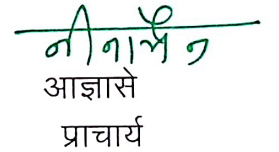 आज्ञासे
प्राचार्य